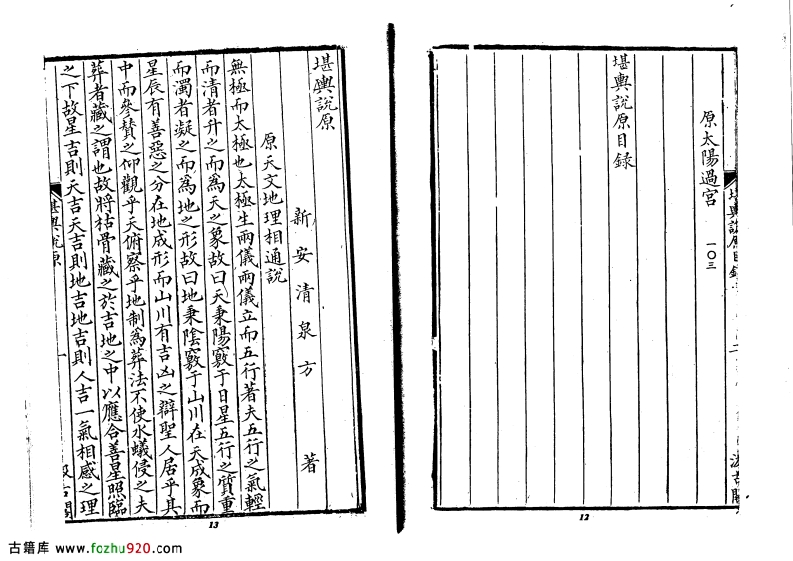 原太陽過宮 一〇三
堪輿說原目錄
12
堪輿說原
新安清泉方 著
原天文地理相通說
無極而太極也太極生兩儀兩儀立而五行著夫五行之氣輕
而清者升之而為天之象故曰天秉陽竅于日星五行之質重
而濁者凝之而為地之形故曰地秉陰竅于山川在天成象而
星辰有善惡之分在地成形而山川有吉凶之辯聖人居乎其
中而參贊之仰觀乎天俯察乎地制為葬法不使水蟻侵之夫
葬者藏之謂也故將枯骨藏之於吉地之中以應合善星照臨
之下故星吉則天吉天吉則地吉地吉則人吉一氣相感之理
堪輿說原
一
13
古籍库 www.fozhu920.com